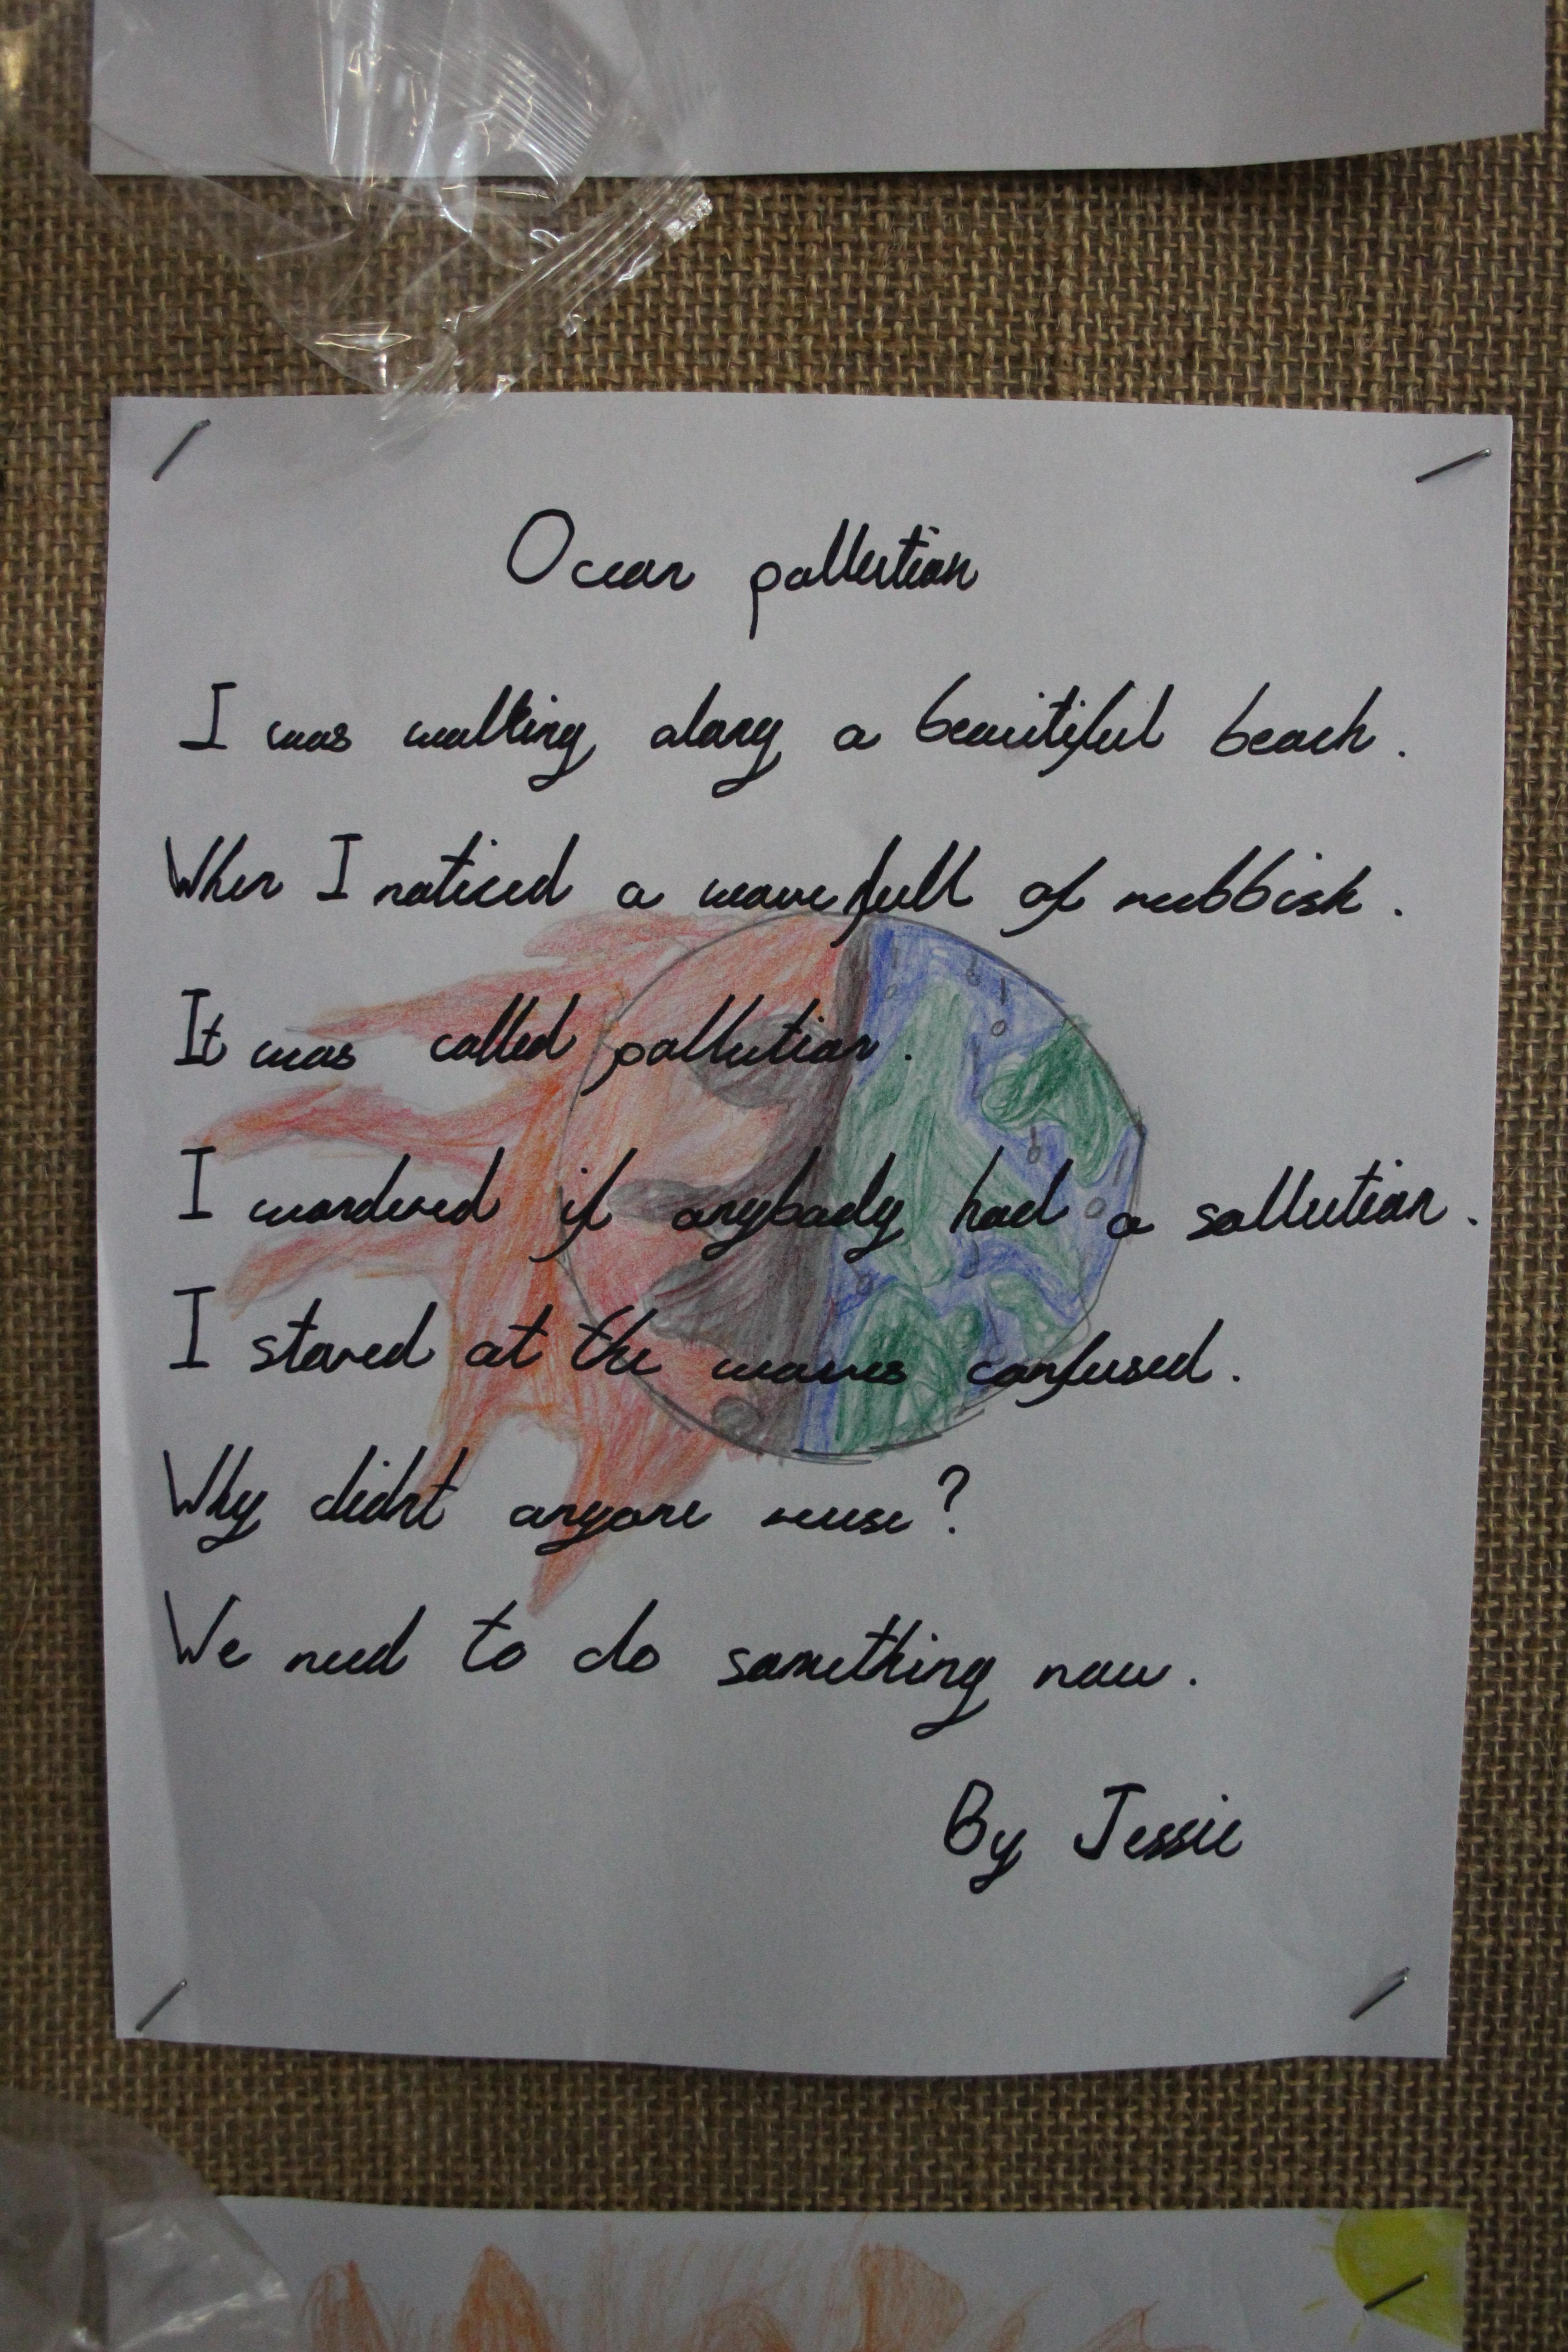 Ocean pollution
I was walking along a beautiful beach.
When I noticed a wave full of rubbish.
It was called pollution.
I wondered if anybody had a sollution.
I stared at the waves confused.
Why didnt anyone reuse?
We need to do something now.
By Jessie